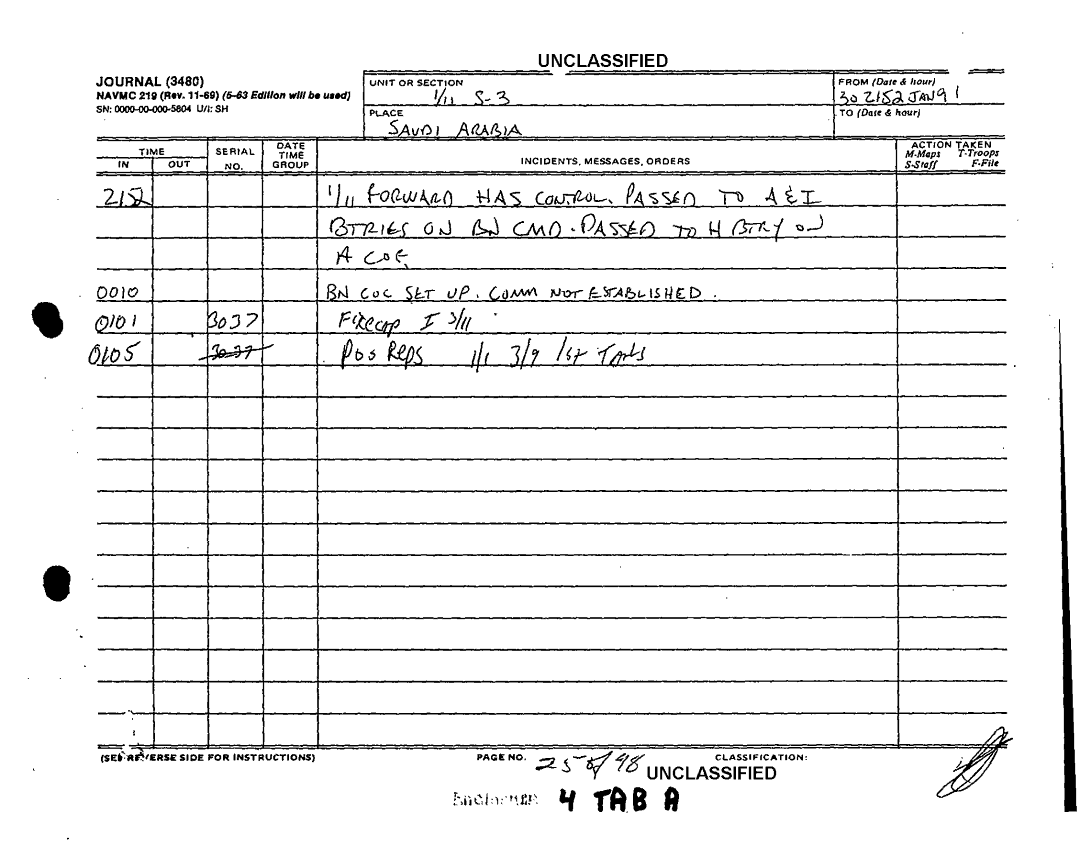 UNCLASSIFIED
JOURNAL (3480)
NAVMC 219 (Rev. 11-69) (6-63 Edition will be used)
SN: 0000-00-000-5804 U/I: SH
UNIT OR SECTION
1/11 S-3
PLACE
SAUDI ARABIA
FROM (Date & hour)
30 2152 JAN 91
TO (Date & hour)
TIME
IN OUT
SERIAL NO.
DATE TIME GROUP
INCIDENTS, MESSAGES, ORDERS
ACTION TAKEN
M-Maps T-Troops
S-Staff F-File
2152 1/11 FORWARD HAS CONTROL. PASSED TO A & I
BTRIES ON BN CMD. PASSED TO H BTRY ON
A COF.
0010 BN COC SET UP. COMM NOT ESTABLISHED.
0101 3037 Firecap I 3/11
0105 3037 Pos Reps 1/1 3/9 1st Tanks
(SEE REVERSE SIDE FOR INSTRUCTIONS)
PAGE NO. 25 of 98
CLASSIFICATION:
UNCLASSIFIED
4 TAB A